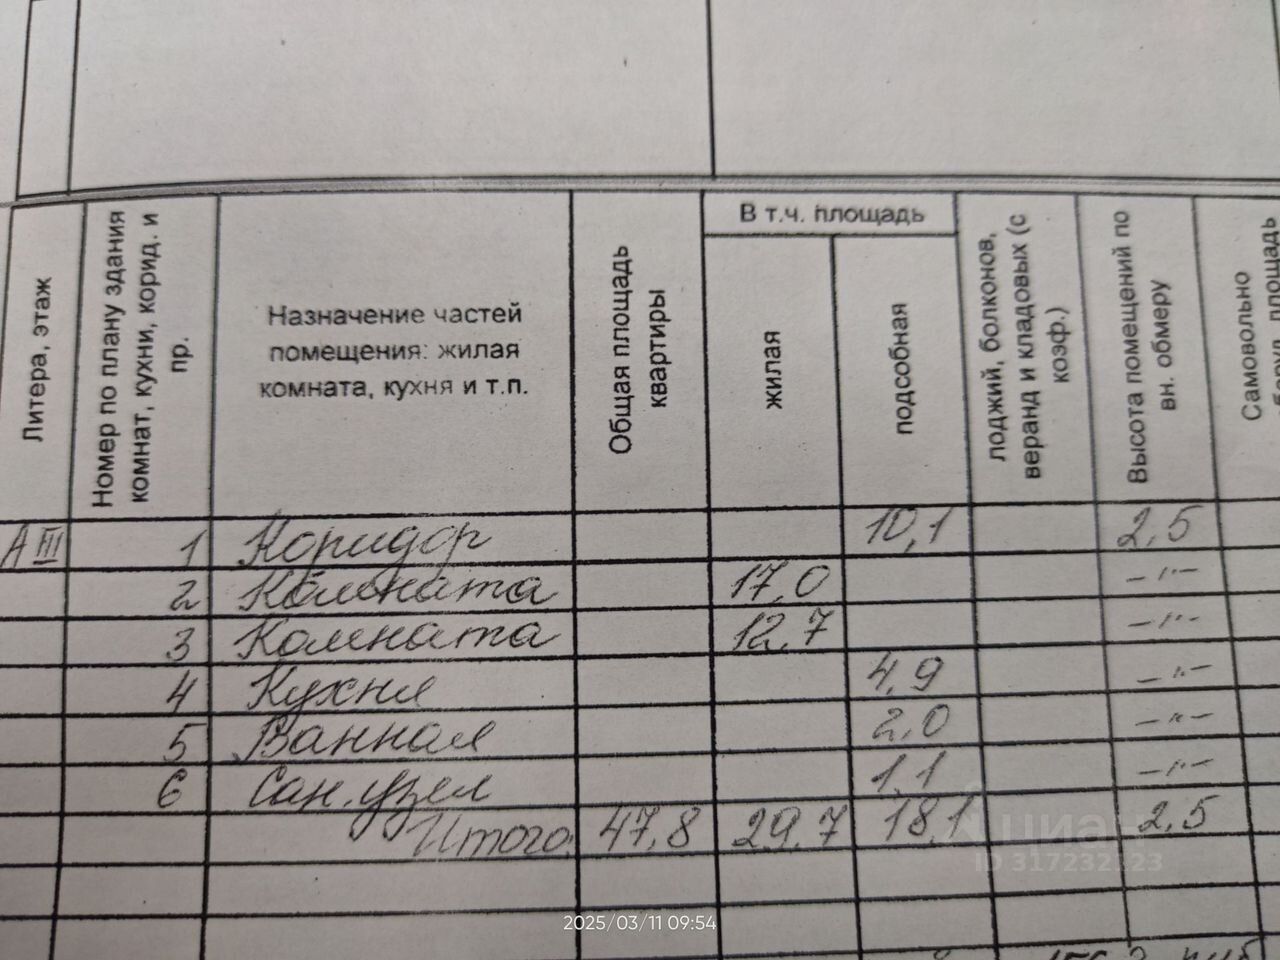 Литера, этаж
Номер по плану здания
комнат, кухни, корид. и
пр.
Назначение частей
помещения: жилая
комната, кухня и т.п.
Общая площадь
квартиры
В т.ч. площадь
жилая
подсобная
лоджий, болконов,
веранд и кладовых (с
коэф.)
Высота помещений по
вн. обмеру
Самовольно
площадь
А III 1 Коридор 10,1 2,5
2 Комната 17,0 –"–
3 Комната 12,7 –"–
4 Кухня 4,9 –"–
5 Ванная 2,0 –"–
6 Сан.узел 1,1 –"–
Итого: 47,8 29,7 18,1 2,5
циан
ID 317232123
2025/03/11 09:54